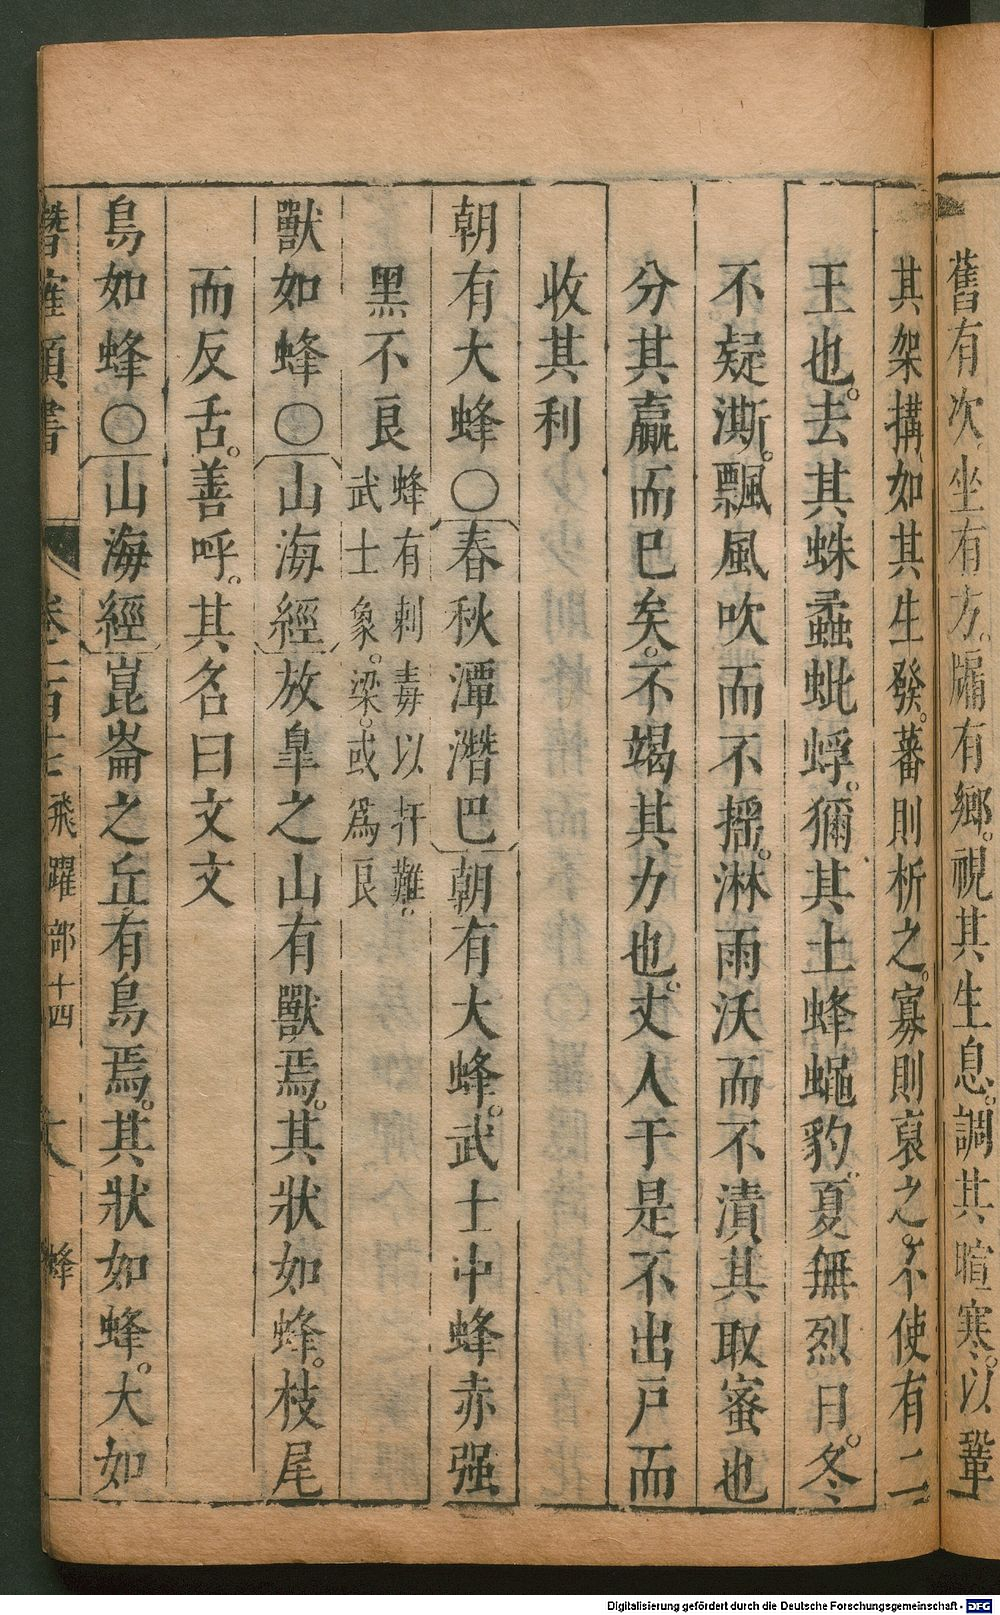 舊有次。坐有方。牖有鄉。視其生息。調其暄寒。以鞏
其架搆如其生發。蕃則析之。寡則裒之。不使有二
王也。去其蛛蟊蚍蜉。獮其土蜂蠅豹。夏無烈日。冬
不疑澌。飄風吹而不搖。淋雨沃而不漬其取蜜也
分其贏而巳矣。不竭其力也。丈人于是不出戶而
收其利
朝有大蜂○春秋潭潛巴朝有大蜂。武士中蜂赤强
黑不良蜂有刺毒以扞難。武士象。梁。或爲良
獸如蜂○山海經放臯之山有獸焉。其狀如蜂。枝尾
而反舌。善呼。其名曰文文
鳥如蜂○山海經崑崙之丘有鳥焉。其狀如蜂。大如
潛確類書 飛躍部十四 蜂
Digitalisierung gefördert durch die Deutsche Forschungsgemeinschaft - DFG